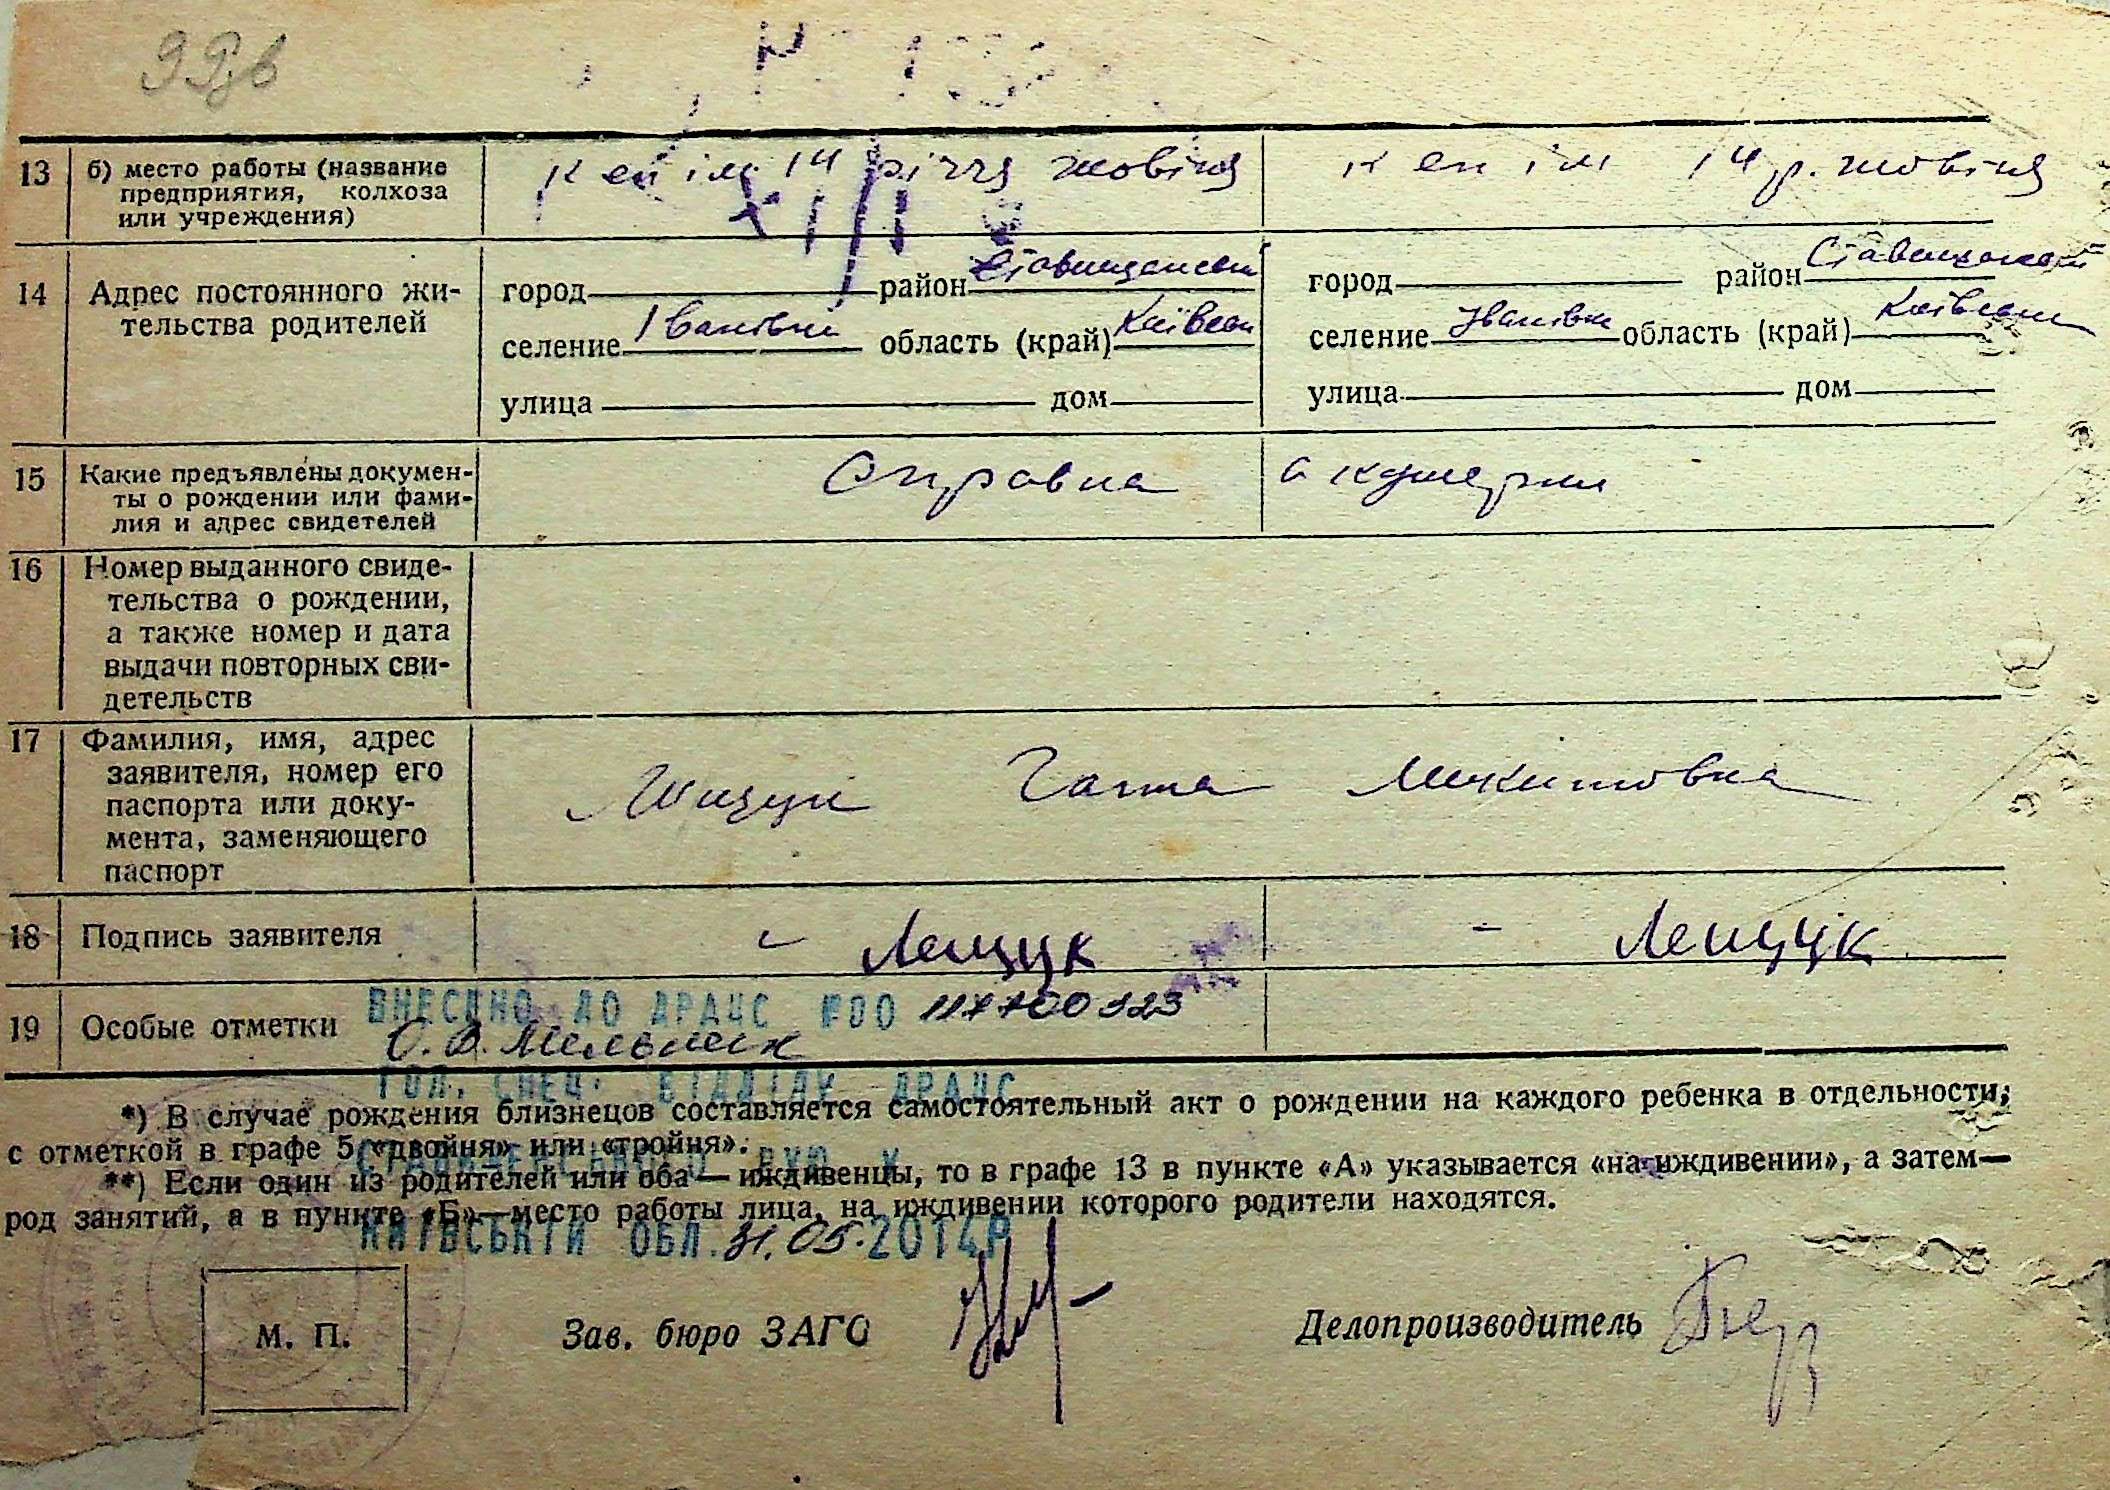 99зв
13 б) место работы (название предприятия, колхоза или учреждения)
к еп ім 14 річчя жовтня
к еп ім 14 р. жовтня
14 Адрес постоянного жительства родителей
город район Ставищанський
селение Іванівка область (край) Київськ
улица дом
город район Ставищанський
селение Іванівка область (край) Київська
улица дом
15 Какие предъявлены документы о рождении или фамилия и адрес свидетелей
Справка акушерки
16 Номер выданного свидетельства о рождении, а также номер и дата выдачи повторных свидетельств
17 Фамилия, имя, адрес заявителя, номер его паспорта или документа, заменяющего паспорт
Лищук Микитовна
18 Подпись заявителя
Лещук
Лещук
19 Особые отметки
ВНЕСЕНО ДО ДРАЦС №00 117700923
О.В. Мельник
ГОЛ. СПЕЦ. ВІДДІЛУ ДРАЦС
*) В случае рождения близнецов составляется самостоятельный акт о рождении на каждого ребенка в отдельности,
с отметкой в графе 5 «двойня» или «тройня».
**) Если один из родителей или оба — иждивенцы, то в графе 13 в пункте «А» указывается «на иждивении», а затем—
род занятий, а в пункте «Б»—место работы лица, на иждивении которого родители находятся.
КИЇВСЬКІЙ ОБЛ. 31.05.2014Р
М. П.
Зав. бюро ЗАГС
Делопроизводитель